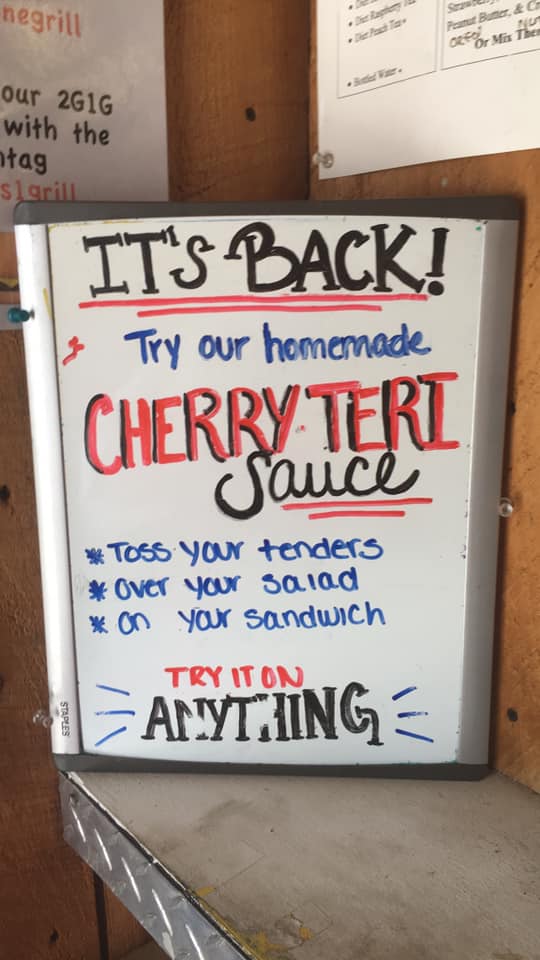 negrill
our 2G1G
with the
ntag
s1grill
• Diet Raspberry
• Diet Peach Tea
• Bottled Water
Peanut Butter, &
Or Mix
IT'S BACK!
Try our homemade
CHERRY TERI
Sauce
* Toss your tenders
* over your salad
* on your sandwich
TRY IT ON
ANYTHING
STAPLES